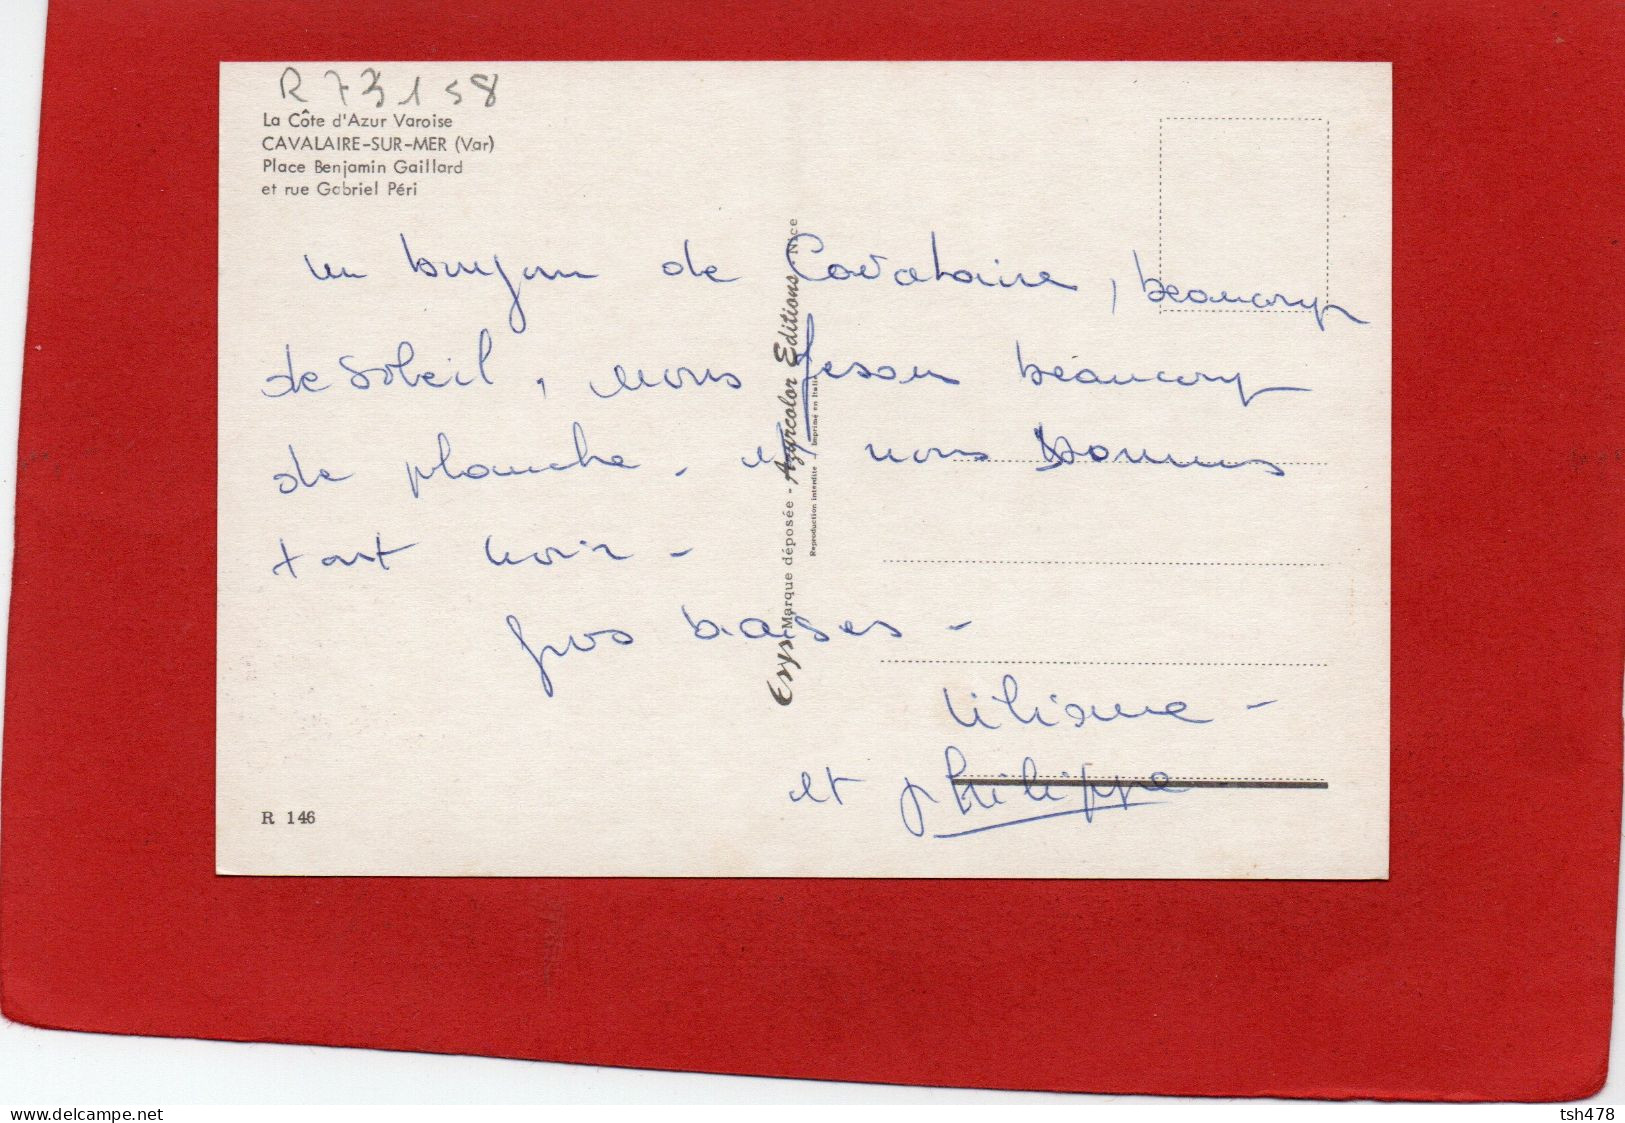 R 73158
La Côte d'Azur Varoise
CAVALAIRE-SUR-MER (Var)
Place Benjamin Gaillard
et rue Gabriel Péri
un bonjour de Cavalaire, beaucoup
de soleil, nous fesons beaucoup
de planche - et nous sommes
tout noir -
gros baises -
Liliane -
et Philippe
Erys - Marque déposée - Azurcolor Editions - Nice
Reproduction interdite - Imprimé en Italie
R 146
delcampe.net
tsh478